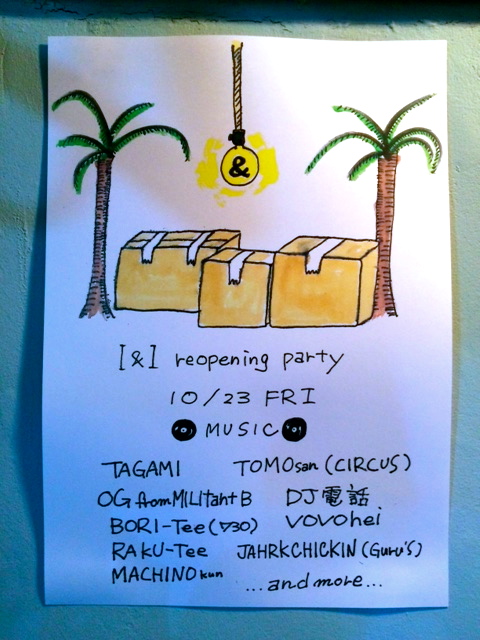 &
[&] reopening party
10/23 FRI
MUSIC
TAGAMI TOMOsan (CIRCUS)
OG from MILitant B DJ電話
BORI-Tee (▽30) VOVOhei
RAKU-Tee JAHRKCHICKIN (Guru's)
MACHINO kun ...and more...